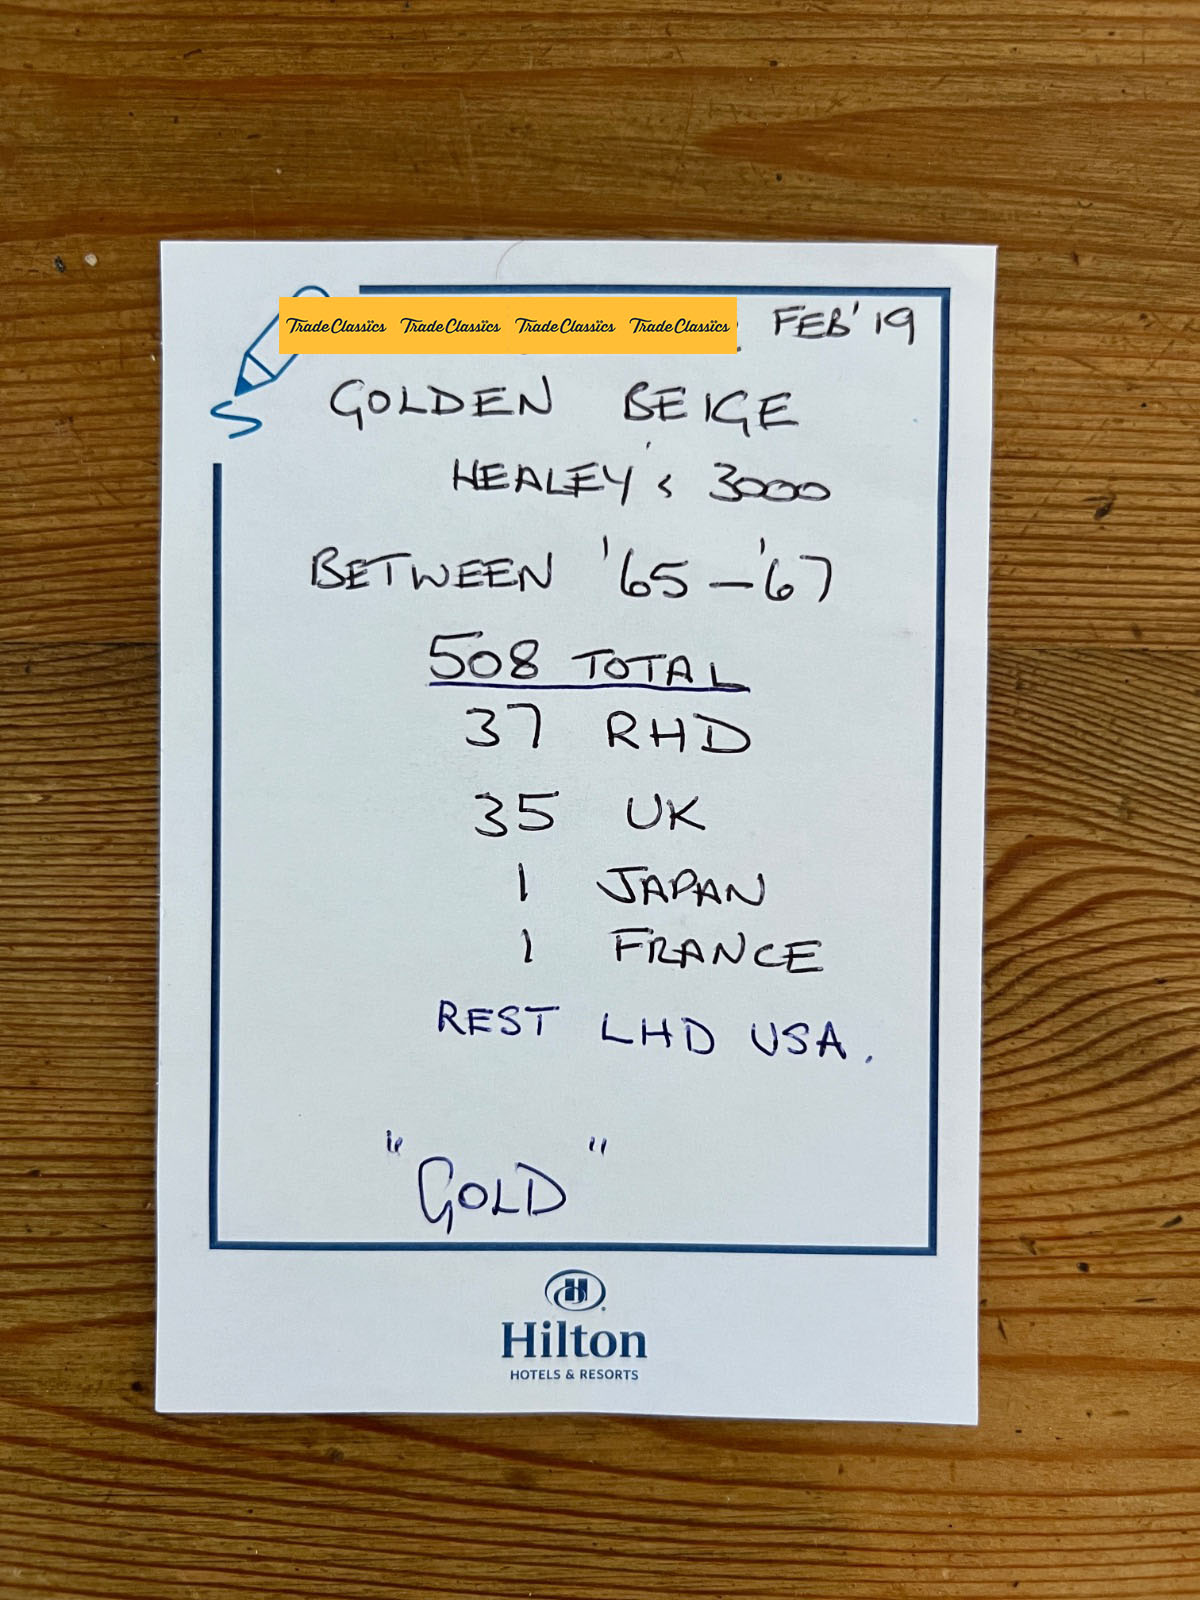 TradeClassics TradeClassics TradeClassics TradeClassics FEB'19
GOLDEN BEIGE
HEALEY's 3000
BETWEEN '65-'67
508 TOTAL
37 RHD
35 UK
1 JAPAN
1 FRANCE
REST LHD USA.
"GOLD"
H
Hilton
HOTELS & RESORTS